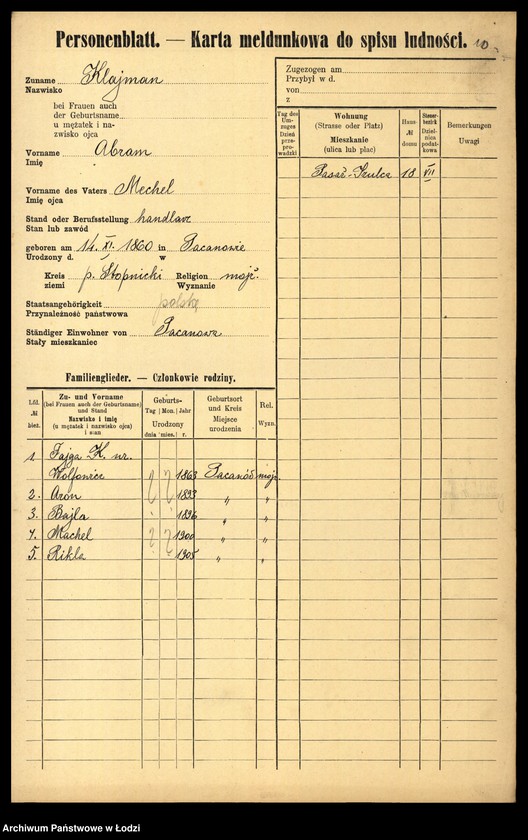 Personenblatt. — Karta meldunkowa do spisu ludności. 10
Zuname Klajman
Nazwisko
bei Frauen auch
der Geburtsname
u mężatek i na-
zwisko ojca
Vorname Abram
Imię
Vorname des Vaters Mechel
Imię ojca
Stand oder Berufsstellung handlarz
Stan lub zawód
geboren am 14. XI. 1860 in Pacanowie
Urodzony d. w
Kreis p. Stopnicki Religion mojż.
ziemi Wyznanie
Staatsangehörigkeit polska
Przynależność państwowa
Ständiger Einwohner von Pacanowa
Stały mieszkaniec
Zugezogen am
Przybył w d.
von
z
Tag des Um-zuges Dzień prze-prowadzki
Wohnung
(Strasse oder Platz)
Mieszkanie
(ulica lub plac)
Haus-
№
domu
Steuer-
bezirk
Dziel-
nica
podat-
kowa
Bemerkungen
Uwagi
Pasaż-Szulca 18 VII
Familienglieder. — Członkowie rodziny.
Lfd.
№
bież.
Zu- und Vorname
(bei Frauen auch der Geburtsname)
und Stand
Nazwisko i imię
(u mężatek i nazwisko ojca)
i stan
Geburts-
Tag Mon. Jahr
Urodzony
dnia mies. r.
Geburtsort
und Kreis
Miejsce
urodzenia
Rel.
Wyzn.
1. Fajga K. ur.
Wolfowicz 1863 Pacanów mojż.
2. Aron 1893 " "
3. Bajla 1896 " "
4. Machel 1900 " "
5. Rikla 1905 " "
Archiwum Państwowe w Łodzi